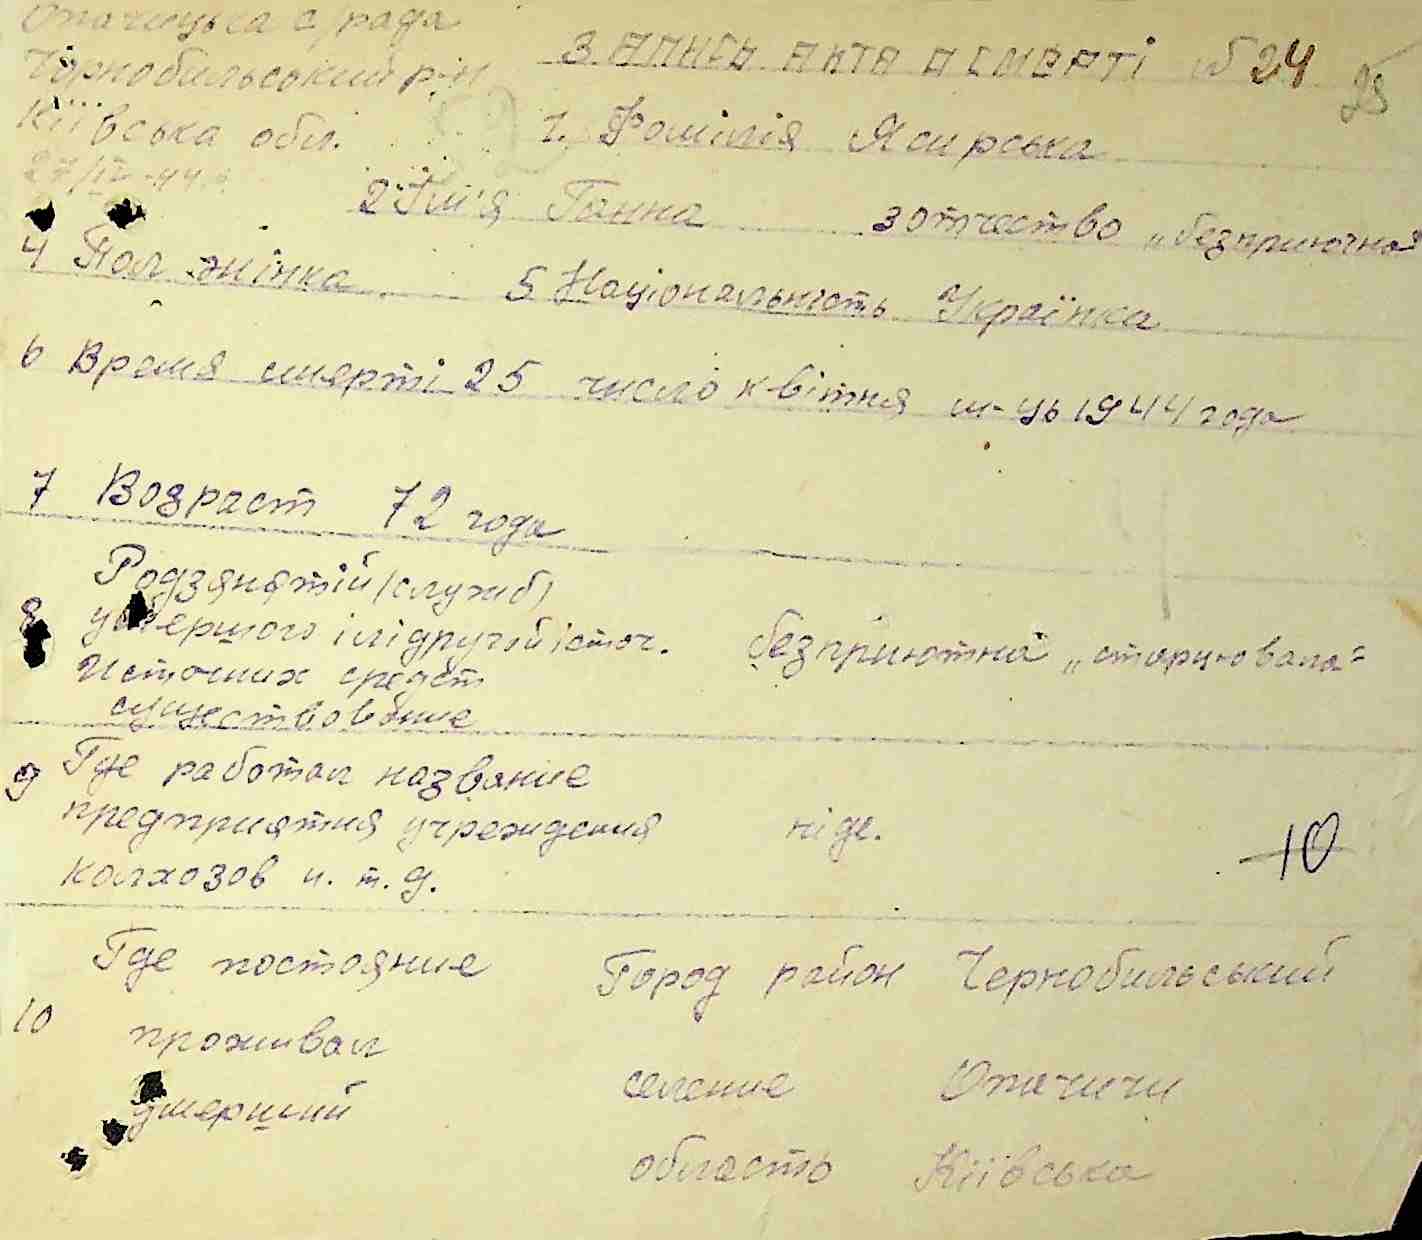 Опачицька с/рада
Чорнобильський р-н
Київська обл.
27/IV-44 р.
ЗАПИСЬ АКТА О СМЕРТІ № 24
25
1. Фамілія Ясирська
2 Ім'я Ганна 3 отчество „безприютна"
4 Пол жінка 5 Національність Українка
6 Время смерті 25 число квітня м-ць 1944 года
7 Возраст 72 года
8 Род занятій (служб)
умершого ілі другой істоч.
Источник средст
существование
безприютна „старцювала"
9 Где работал название
предприятия учреждения
колхозов и. т. д.
ніде.
10
10 Где постояние
проживал
умерший
Город район Чернобильський
селение Опачичи
область Київська